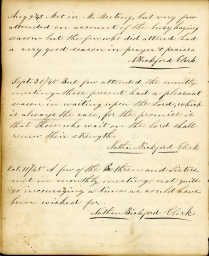 Aug 2/45 Met in M. Meeting, but very few
attended on account of the busy haying
season but the few who did attend had
a very good season in prayer & praises
N Bickford Clerk
Sept 21/45 But few attended the monthly
meeting those present had a pleasant
season in waiting upon the Lord, which
is always the case, for the promise is
that those who wait on the Lord shall
renew their strength.
Nathan Bickford Clerk
Oct. 11/45 A few of the Brethren and Sisters
met in monthly meeting, not quite
so incouraging a time as could have
been wished for.
Nathan Bickford Clerk